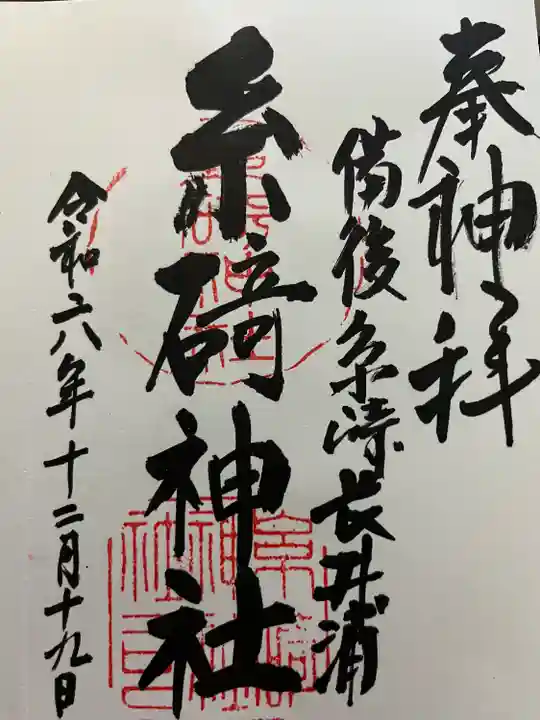 奉神拝
備後糸濤長井浦
糸碕神社
令和六年十二月十九日